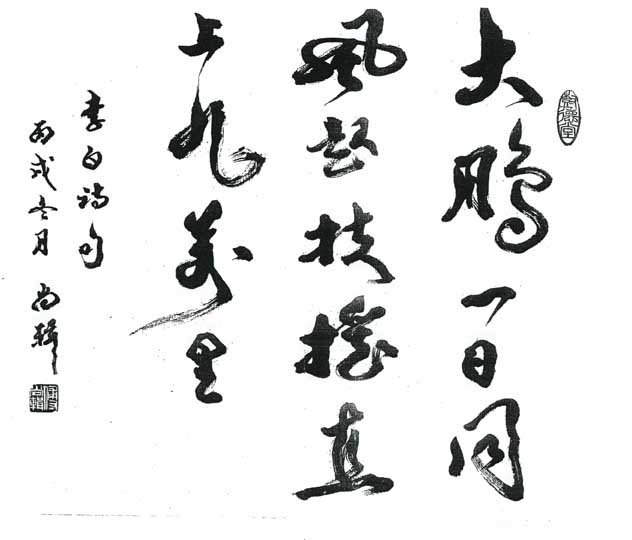 大鹏一日同
风起扶摇直
上九万里
李白诗句
丙戌冬月 尚辉